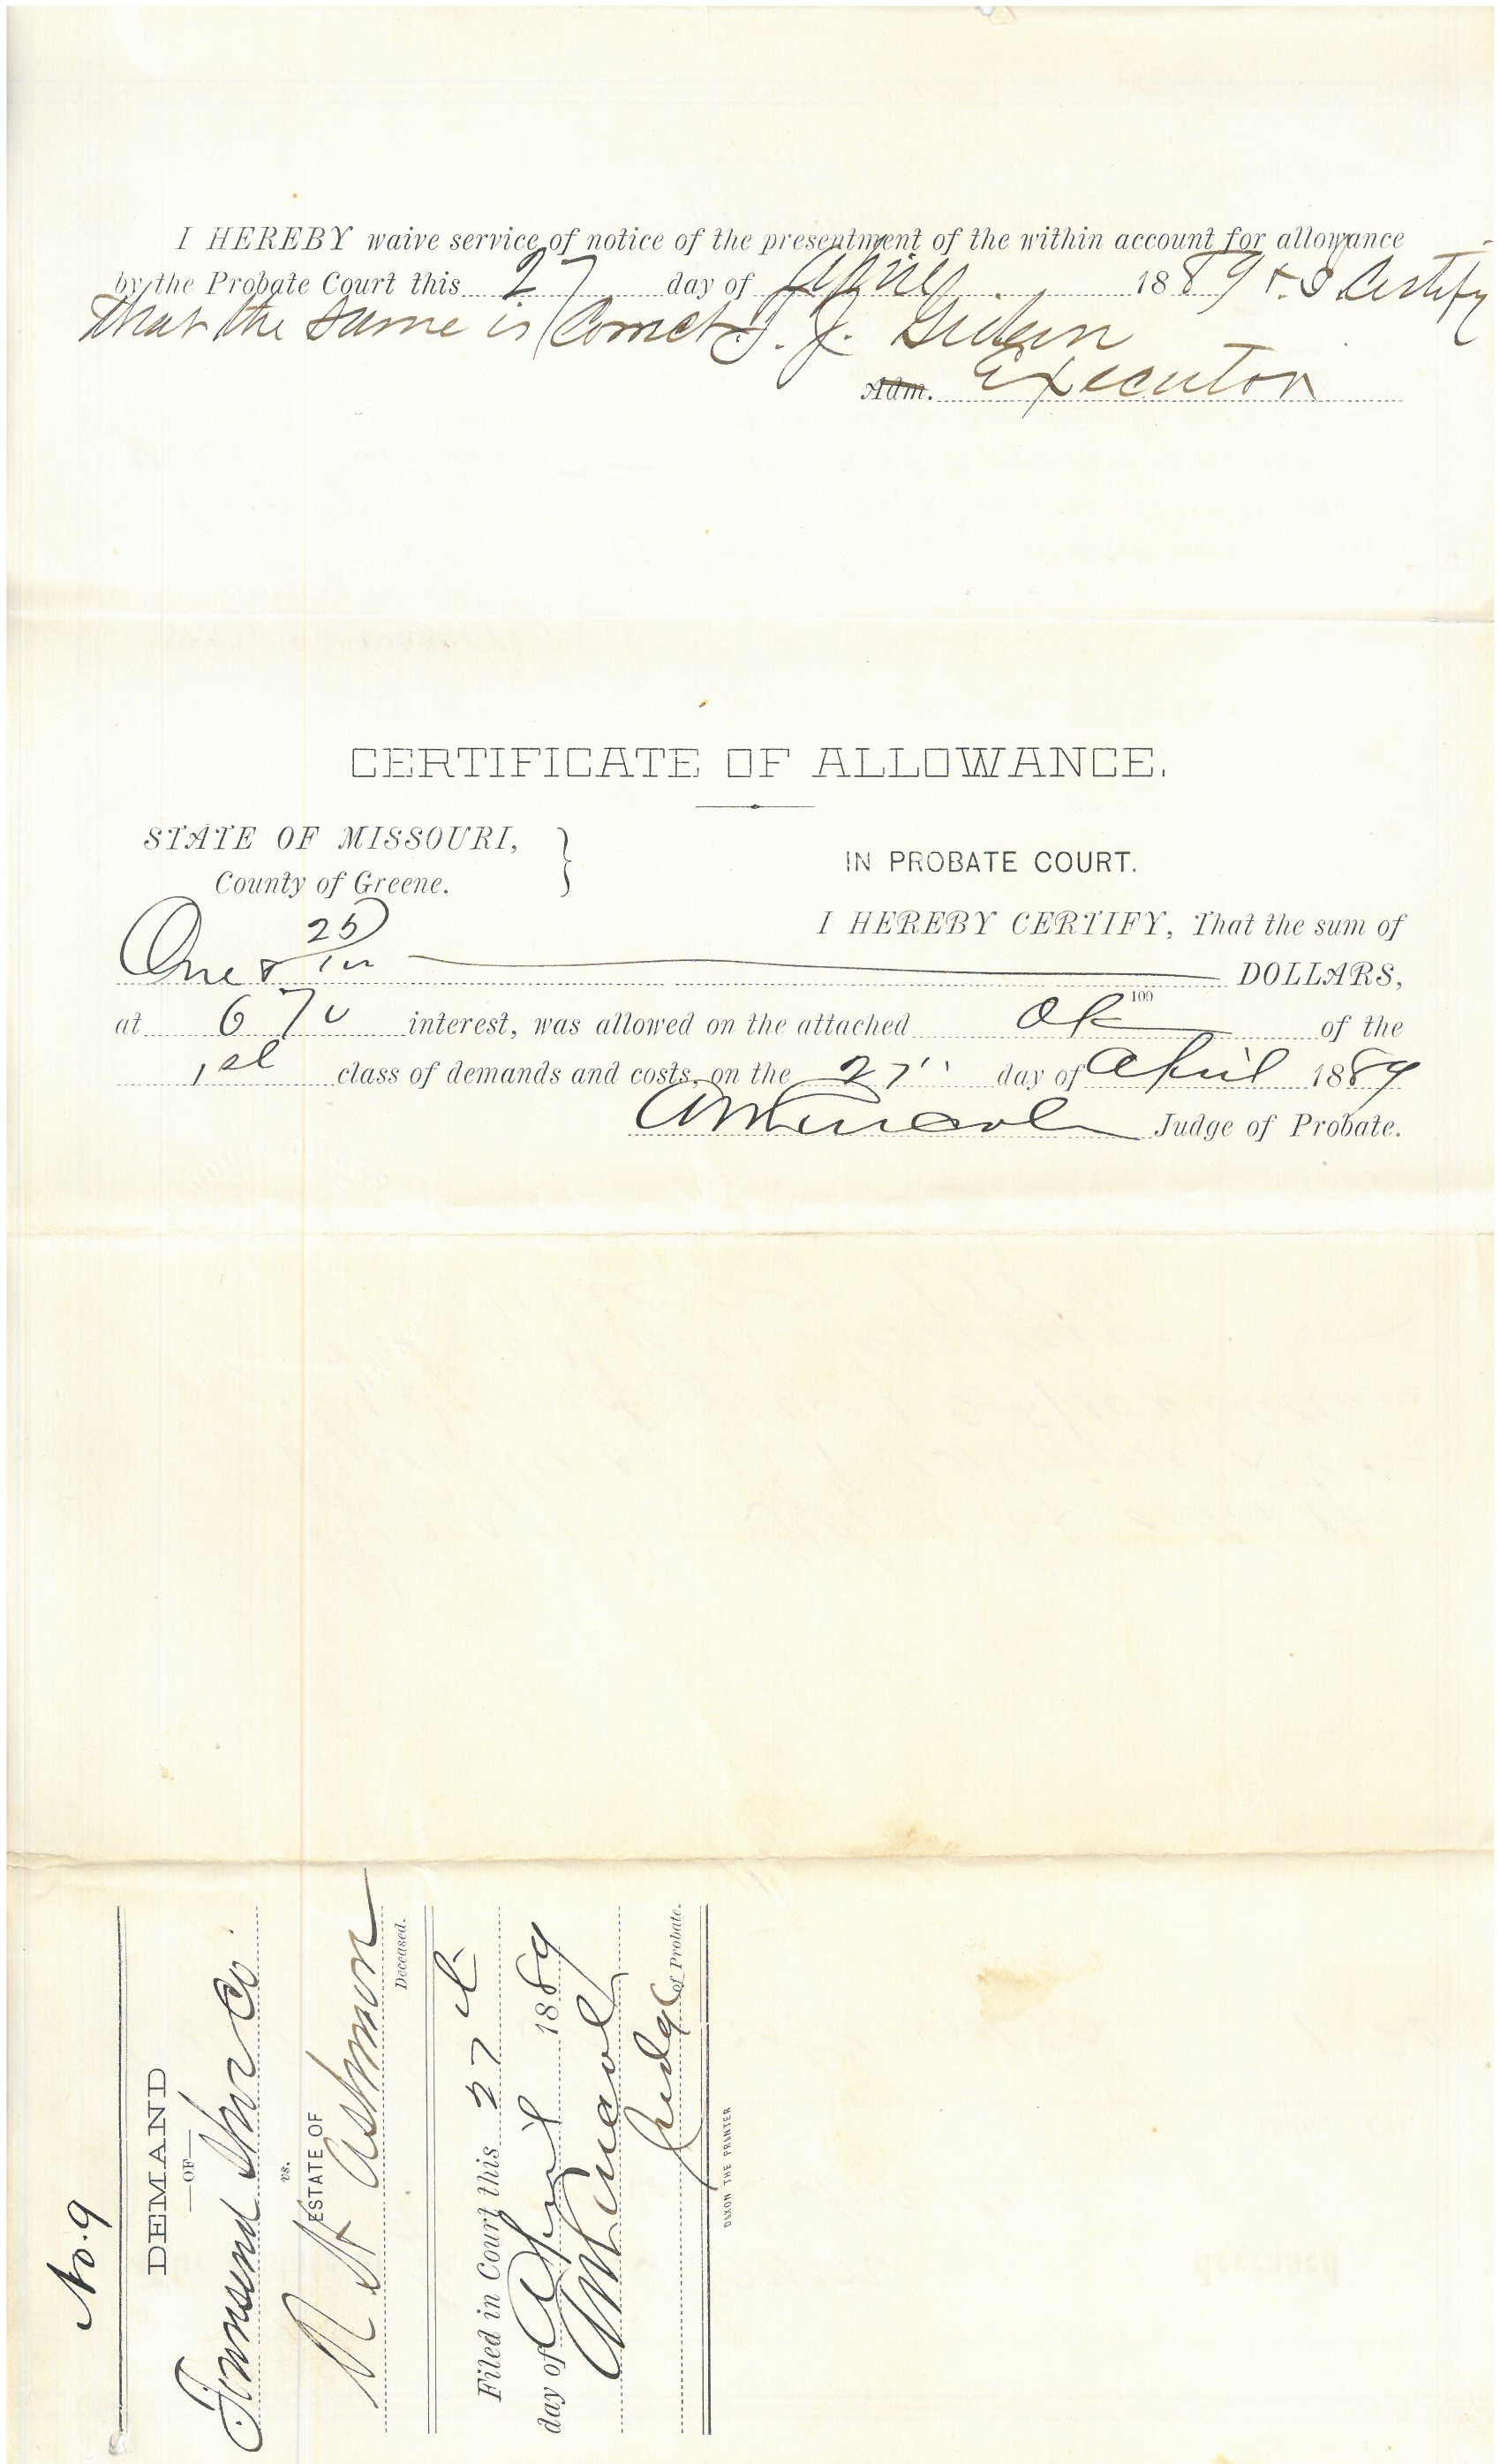 I HEREBY waive service of notice of the presentment of the within account for allowance
by the Probate Court this 27 day of April 1889 & I Certify
that the same is Correct. J. J. Gideon
Adm. Executor
CERTIFICATE OF ALLOWANCE.
STATE OF MISSOURI,
County of Greene.
IN PROBATE COURT.
I HEREBY CERTIFY, That the sum of
One & 25/100 DOLLARS,
100
at 6 % interest, was allowed on the attached of the
1st class of demands and costs, on the 27" day of April 1889
Judge of Probate.
No. 9
DEMAND
—OF—
Townsend Co
vs.
ESTATE OF
Ashmon
Deceased.
Filed in Court this 27
day of April 1889
Judge of Probate.
DIXON THE PRINTER